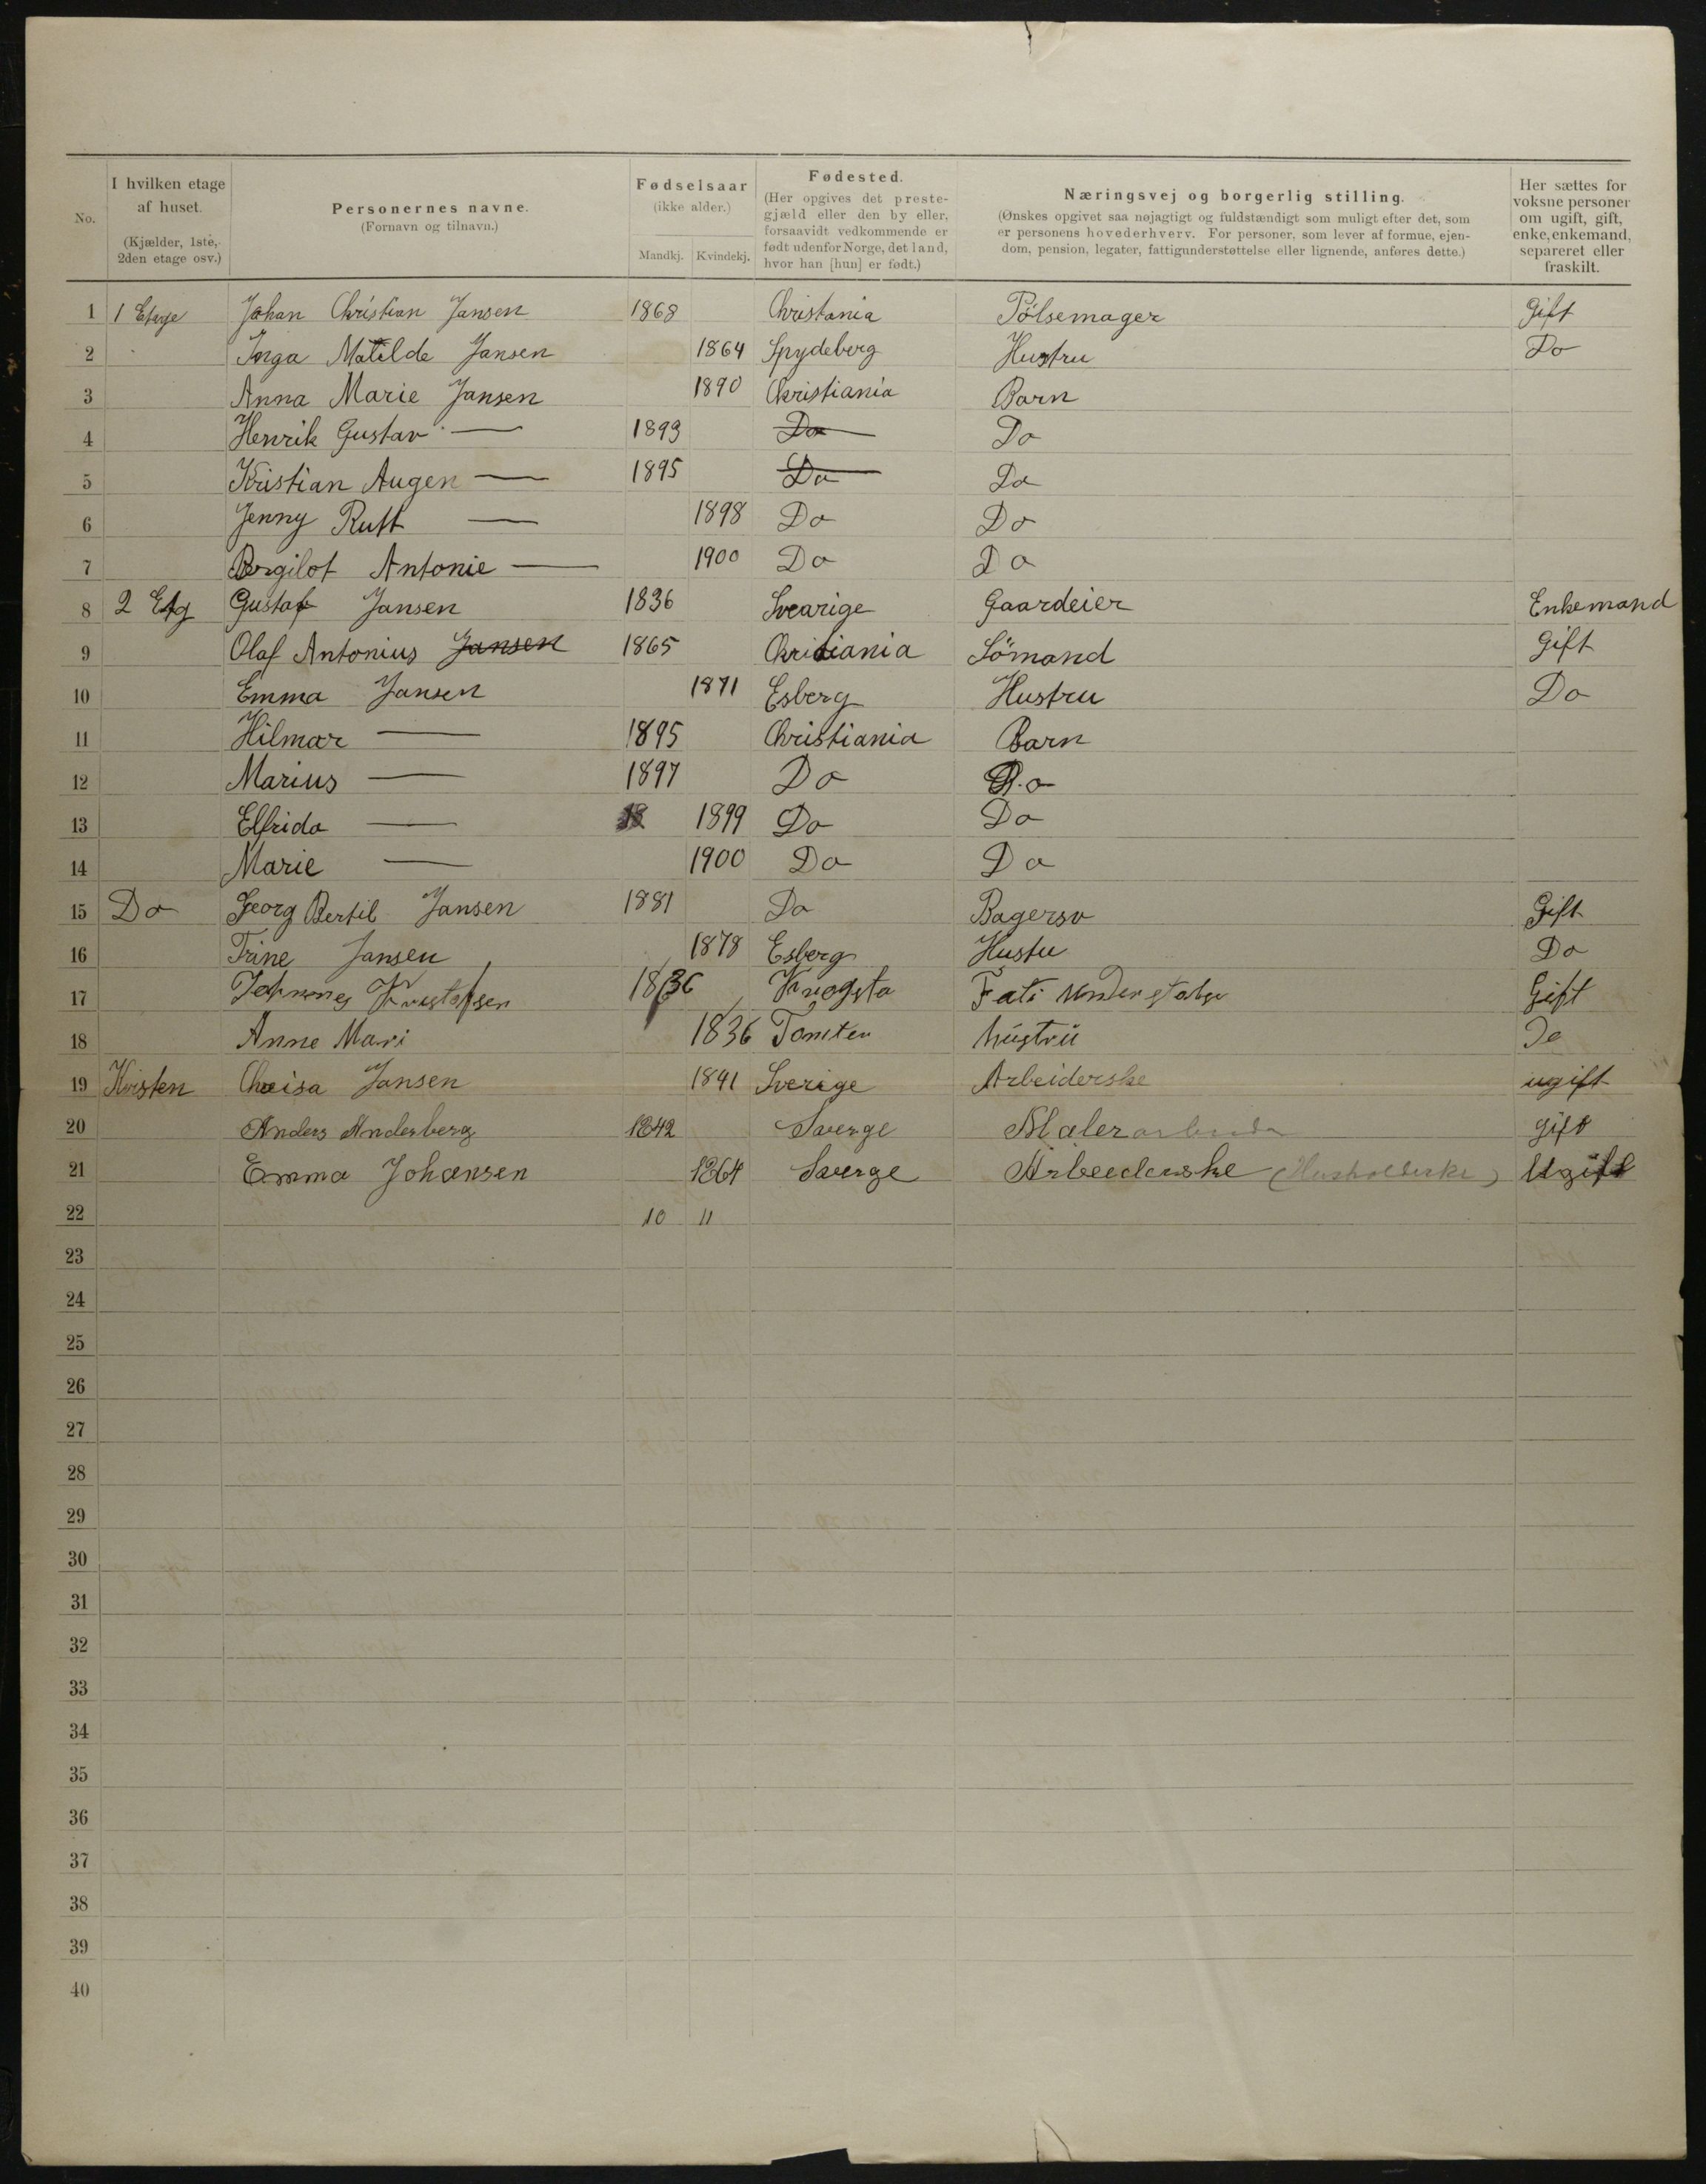 No.
I hvilken etage af huset. (Kjælder, 1ste, 2den etage osv.)
Personernes navne. (Fornavn og tilnavn.)
Fødselsaar (ikke alder.) Mandkj. Kvindekj.
Fødested. (Her opgives det prestegjæld eller den by eller, forsaavidt vedkommende er født udenfor Norge, det land, hvor han [hun] er født.)
Næringsvej og borgerlig stilling. (Ønskes opgivet saa nøjagtigt og fuldstændigt som muligt efter det, som er personens hovederhverv. For personer, som lever af formue, ejendom, pension, legater, fattigunderstøttelse eller lignende, anføres dette.)
Her sættes for voksne personer om ugift, gift, enke, enkemand, separeret eller fraskilt.
1 1 Etage Johan Christian Jansen 1868 Christania Pölsemager Gift
2 Inga Matilde Jansen 1864 Spydeberg Hustru Do
3 Anna Marie Jansen 1890 Christiania Barn
4 Henrik Gustav — 1893 Do Do
5 Kristian Augen — 1895 Do Do
6 Jenny Rutt — 1898 Do Do
7 Bergilot Antonie — 1900 Do Do
8 2 Etg Gustaf Jansen 1836 Svearige Gaardeier Enkemand
9 Olaf Antonius Jansen 1865 Christiania Sömand Gift
10 Emma Jansen 1871 Esberg Hustru Do
11 Hilmar — 1895 Christiania Barn
12 Marius — 1897 Do Do
13 Elfrida — 18 1899 Do Do
14 Marie — 1900 Do Do
15 Do Georg Bertil Jansen 1881 Do Bagersv Gift
16 Trine Jansen 1878 Esberg Hustu Do
17 Johannes Kristofsen 1836 Gift
18 Anne Mari 1836 Tomten hustru Do
19 Kvisten Jansen 1841 Sverige Arbeiderske ugift
20 Anders Anderberg 1842 Sverge Maler gift
21 Emma Johansen 1864 Sverge Arbeederske (Husholderske) Ugift
22 10 11
23
24
25
26
27
28
29
30
31
32
33
34
35
36
37
38
39
40